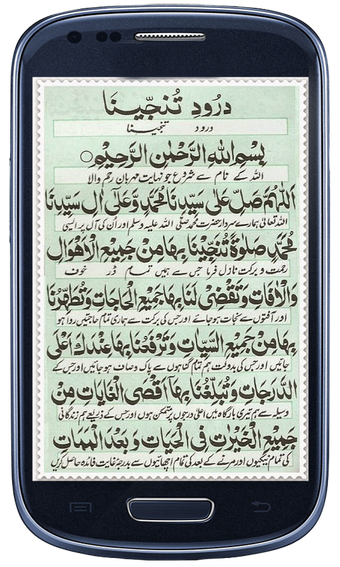 درودِ تُنجّینَا
درود تنجینا
بِسْمِ اللهِ الرَّحْمٰنِ الرَّحِيْمِ
اللہ کے نام سے شروع جو نہایت مہربان رحم والا
اَللّٰهُمَّ صَلِّ عَلٰى سَيِّدِنَا مُحَمَّدٍ وَّعَلٰٓى اٰلِ سَيِّدِنَا
اللہ تعالیٰ ہمارے سردار حضرت محمد صلی اللہ علیہ وسلم اور ان کی آل پر ایسی
مُحَمَّدٍ صَلٰوةً تُنَجِّيْنَا بِهَا مِنْ جَمِيْعِ الْاَهْوَالِ
رحمت و برکت نازل فرما جس سے ہمیں تمام ڈر خوف
وَالْاٰفَاتِ وَتَقْضِىْ لَنَا بِهَا جَمِيْعَ الْحَاجَاتِ وَتُطَهِّرُنَا
اور آفتوں سے نجات ہو جائے اور جس کی برکت سے ہماری تمام حاجتیں روا ہو
بِهَا مِنْ جَمِيْعِ السَّيِّاٰتِ وَتَرْفَعُنَا بِهَا عِنْدَكَ اَعْلَى
جائیں اور جس کی بدولت ہم تمام گناہوں سے پاک و صاف ہو جائیں اور جس کے
الدَّرَجَاتِ وَتُبَلِّغُنَا بِهَا اَقْصَى الْغَايَاتِ مِنْ
وسیلہ سے ہم تیری بارگاہ میں اعلیٰ درجوں پر متمکن ہوں اور جس کے ذریعے ہم زندگانی
جَمِيْعِ الْخَيْرٰتِ فِى الْحَيَاتِ وَبَعْدَ الْمَمَاتِ
کی تمام نیکیوں اور مرنے کے بعد کی تمام اچھائیوں سے بدرجہ غایت فائدہ حاصل کریں